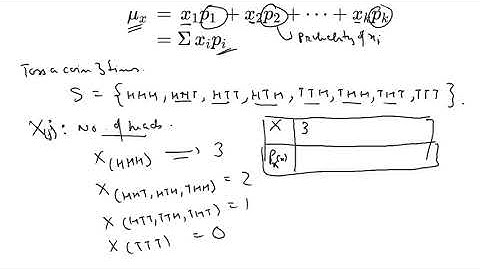 μₓ = x₁p₁ + x₂p₂ + ··· + xₖpₖ
= Σ xᵢpᵢ
Probability of xᵢ
Toss a coin 3 times.
S = {HHH, HHT, HTT, HTH, TTH, THH, THT, TTT}.
X(j): No of heads.
X 3
X(HHH) → 3
X(HHT, HTH, THH) = 2
X(HTT, TTH, THT) = 1
X(TTT) = 0